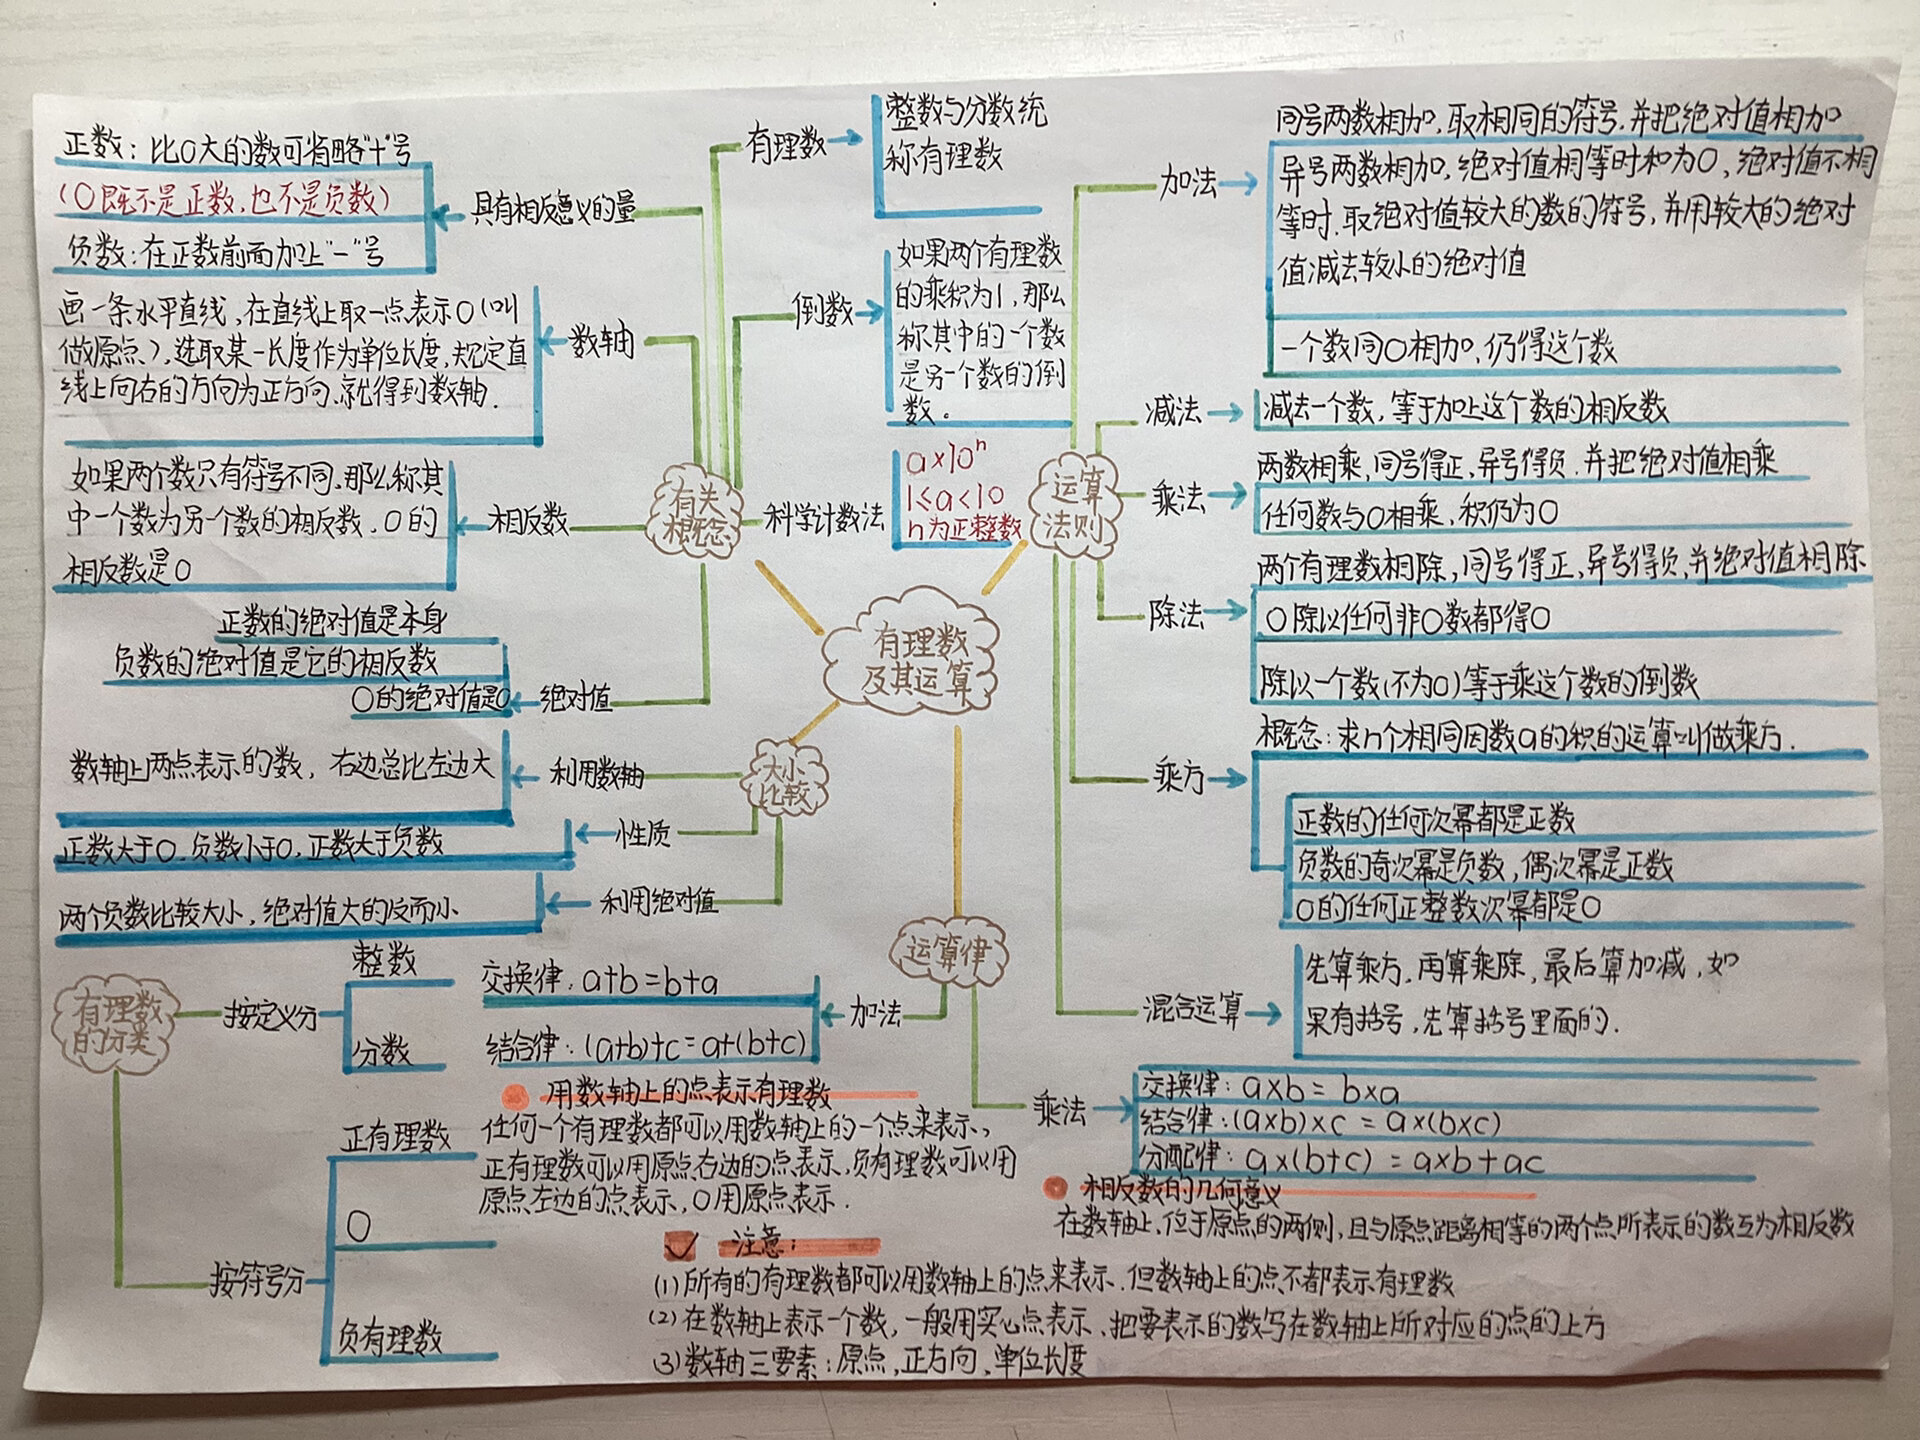 正数：比0大的数可省略"+"号
(0既不是正数,也不是负数)
负数：在正数前面加上"-"号
具有相反意义的量
画一条水平直线,在直线上取一点表示0(叫
做原点、),选取某一长度作为单位长度,规定直
线上向右的方向为正方向、就得到数轴.
数轴
如果两个数只有符号不同,那么称其
中一个数为另一个数的相反数、0的
相反数是0
相反数
正数的绝对值是本身
负数的绝对值是它的相反数
0的绝对值是0
绝对值
有关
概念
有理数
整数与分数统
称有理数
倒数
如果两个有理数
的乘积为1,那么
称其中的一个数
是另一个数的倒
数。
科学计数法
a×10ⁿ
1≤a<10
n为正整数
有理数
及其运算
大小
比较
利用数轴
数轴上两点表示的数，右边总比左边大
性质
正数大于0.负数小于0,正数大于负数
利用绝对值
两个负数比较大小,绝对值大的反而小
运算
法则
加法
同号两数相加,取相同的符号.并把绝对值相加
异号两数相加,绝对值相等时和为0,绝对值不相
等时.取绝对值较大的数的符号,并用较大的绝对
值减去较小的绝对值
一个数同0相加,仍得这个数
减法
减去一个数,等于加上这个数的相反数
乘法
两数相乘,同号得正,异号得负.并把绝对值相乘
任何数与0相乘,积仍为0
除法
两个有理数相除,同号得正,异号得负,并绝对值相除
0除以任何非0数都得0
除以一个数(不为0)等于乘这个数的倒数
乘方
概念:求n个相同因数a的积的运算叫做乘方.
正数的任何次幂都是正数
负数的奇次幂是负数,偶次幂是正数
0的任何正整数次幂都是0
混合运算
先算乘方,再算乘除,最后算加减,如
果有括号,先算括号里面的.
运算律
加法
交换律:a+b=b+a
结合律:(a+b)+c=a+(b+c)
乘法
交换律:a×b=b×a
结合律:(a×b)×c=a×(b×c)
分配律:a×(b+c)=a×b+ac
有理数
的分类
按定义分
整数
分数
按符号分
正有理数
0
负有理数
用数轴上的点表示有理数
任何一个有理数都可以用数轴上的一个点来表示,
正有理数可以用原点右边的点表示,负有理数可以用
原点左边的点表示,0用原点表示.
相反数的几何意义
在数轴上,位于原点的两侧,且与原点距离相等的两个点所表示的数互为相反数
注意:
(1)所有的有理数都可以用数轴上的点来表示.但数轴上的点不都表示有理数
(2)在数轴上表示一个数,一般用实心点表示、把要表示的数写在数轴上所对应的点的上方
(3)数轴三要素:原点,正方向,单位长度